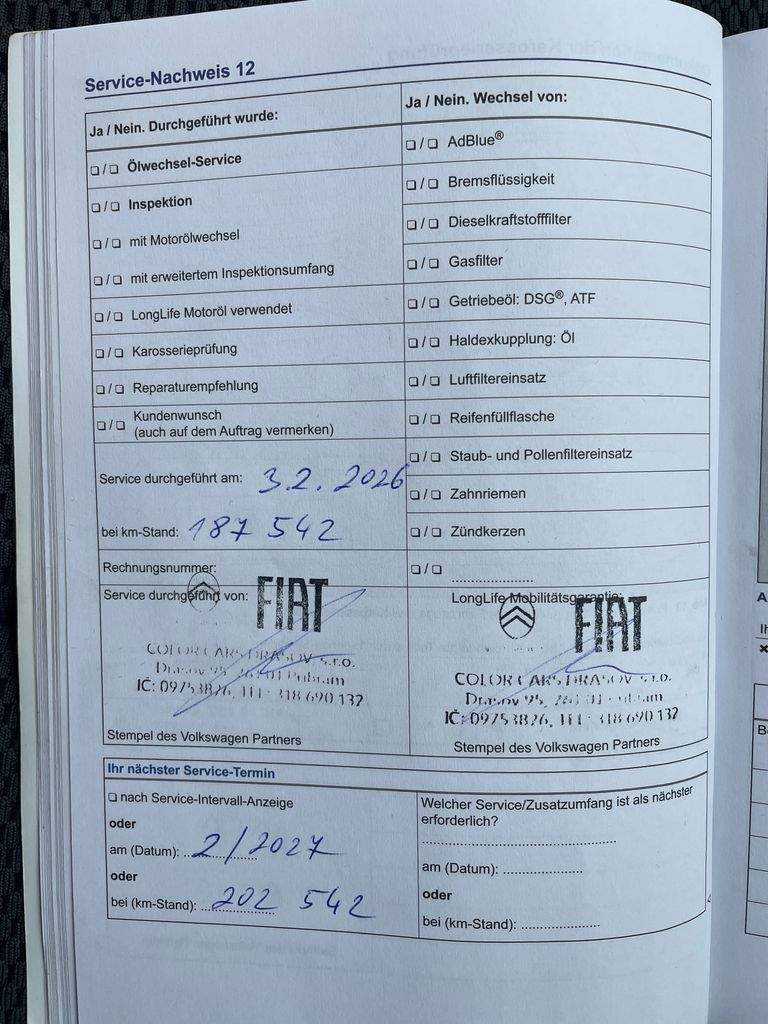 Service-Nachweis 12
Ja / Nein. Durchgeführt wurde:
❏ / ❏ Ölwechsel-Service
❏ / ❏ Inspektion
❏ / ❏ mit Motorölwechsel
❏ / ❏ mit erweitertem Inspektionsumfang
❏ / ❏ LongLife Motoröl verwendet
❏ / ❏ Karosserieprüfung
❏ / ❏ Reparaturempfehlung
❏ / ❏ Kundenwunsch
(auch auf dem Auftrag vermerken)
Service durchgeführt am: 3.2.2026
bei km-Stand: 187 542
Rechnungsnummer:
Service durchgeführt von:
FIAT
COLOR CARS DRASOV s.r.o.
Drasov 95, 261 01 Pribram
IČ: 09753826, TEL: 318 690 132
Stempel des Volkswagen Partners
Ja / Nein. Wechsel von:
❏ / ❏ AdBlue®
❏ / ❏ Bremsflüssigkeit
❏ / ❏ Dieselkraftstofffilter
❏ / ❏ Gasfilter
❏ / ❏ Getriebeöl: DSG®, ATF
❏ / ❏ Haldexkupplung: Öl
❏ / ❏ Luftfiltereinsatz
❏ / ❏ Reifenfüllflasche
❏ / ❏ Staub- und Pollenfiltereinsatz
❏ / ❏ Zahnriemen
❏ / ❏ Zündkerzen
❏ / ❏ ....................
LongLife Mobilitätsgarantie:
FIAT
COLOR CARS DRASOV s.r.o.
Drasov 95, 261 01 Pribram
IČ: 09753826, TEL: 318 690 132
Stempel des Volkswagen Partners
Ihr nächster Service-Termin
❏ nach Service-Intervall-Anzeige
oder
am (Datum): 2/2027
oder
bei (km-Stand): 202 542
Welcher Service/Zusatzumfang ist als nächster
erforderlich?
am (Datum): ....................
oder
bei (km-Stand): ....................